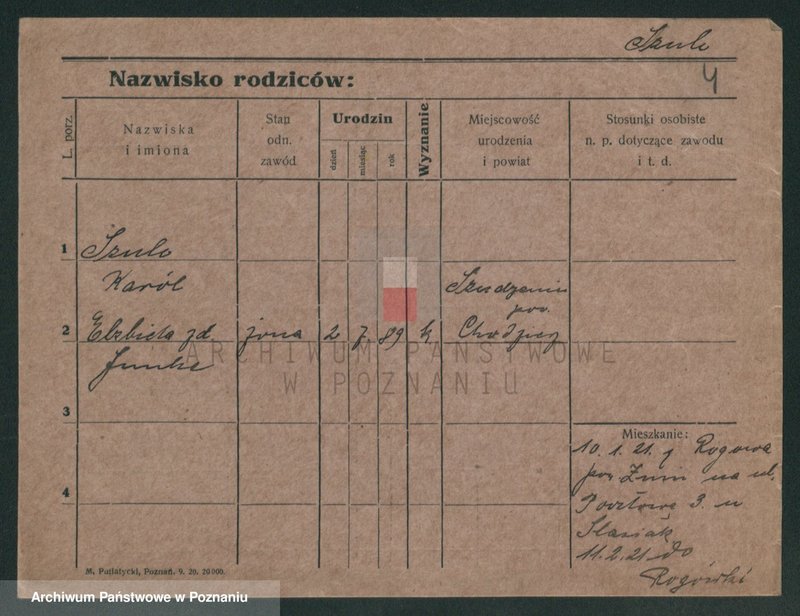 Szulc
4
Nazwisko rodziców:
L. porz.
Nazwiska
i imiona
Stan
odn.
zawód
Urodzin
dzień
miesiąc
rok
Wyznanie
Miejscowość
urodzenia
i powiat
Stosunki osobiste
n. p. dotyczące zawodu
i t. d.
1 Szulc
Karól
2 Elzbieta zd. żona 2 7 89 k
pow.
Chodzież
3
4
Mieszkanie:
10. 1. 21. z Rogowa
pow. Żnin na ul.
Pocztową 3. u
Stasiak
11.2.21. do
M. Putiatycki, Poznań. 9. 20. 20000.
ARCHIWUM PAŃSTWOWE
W POZNANIU
Archiwum Państwowe w Poznaniu